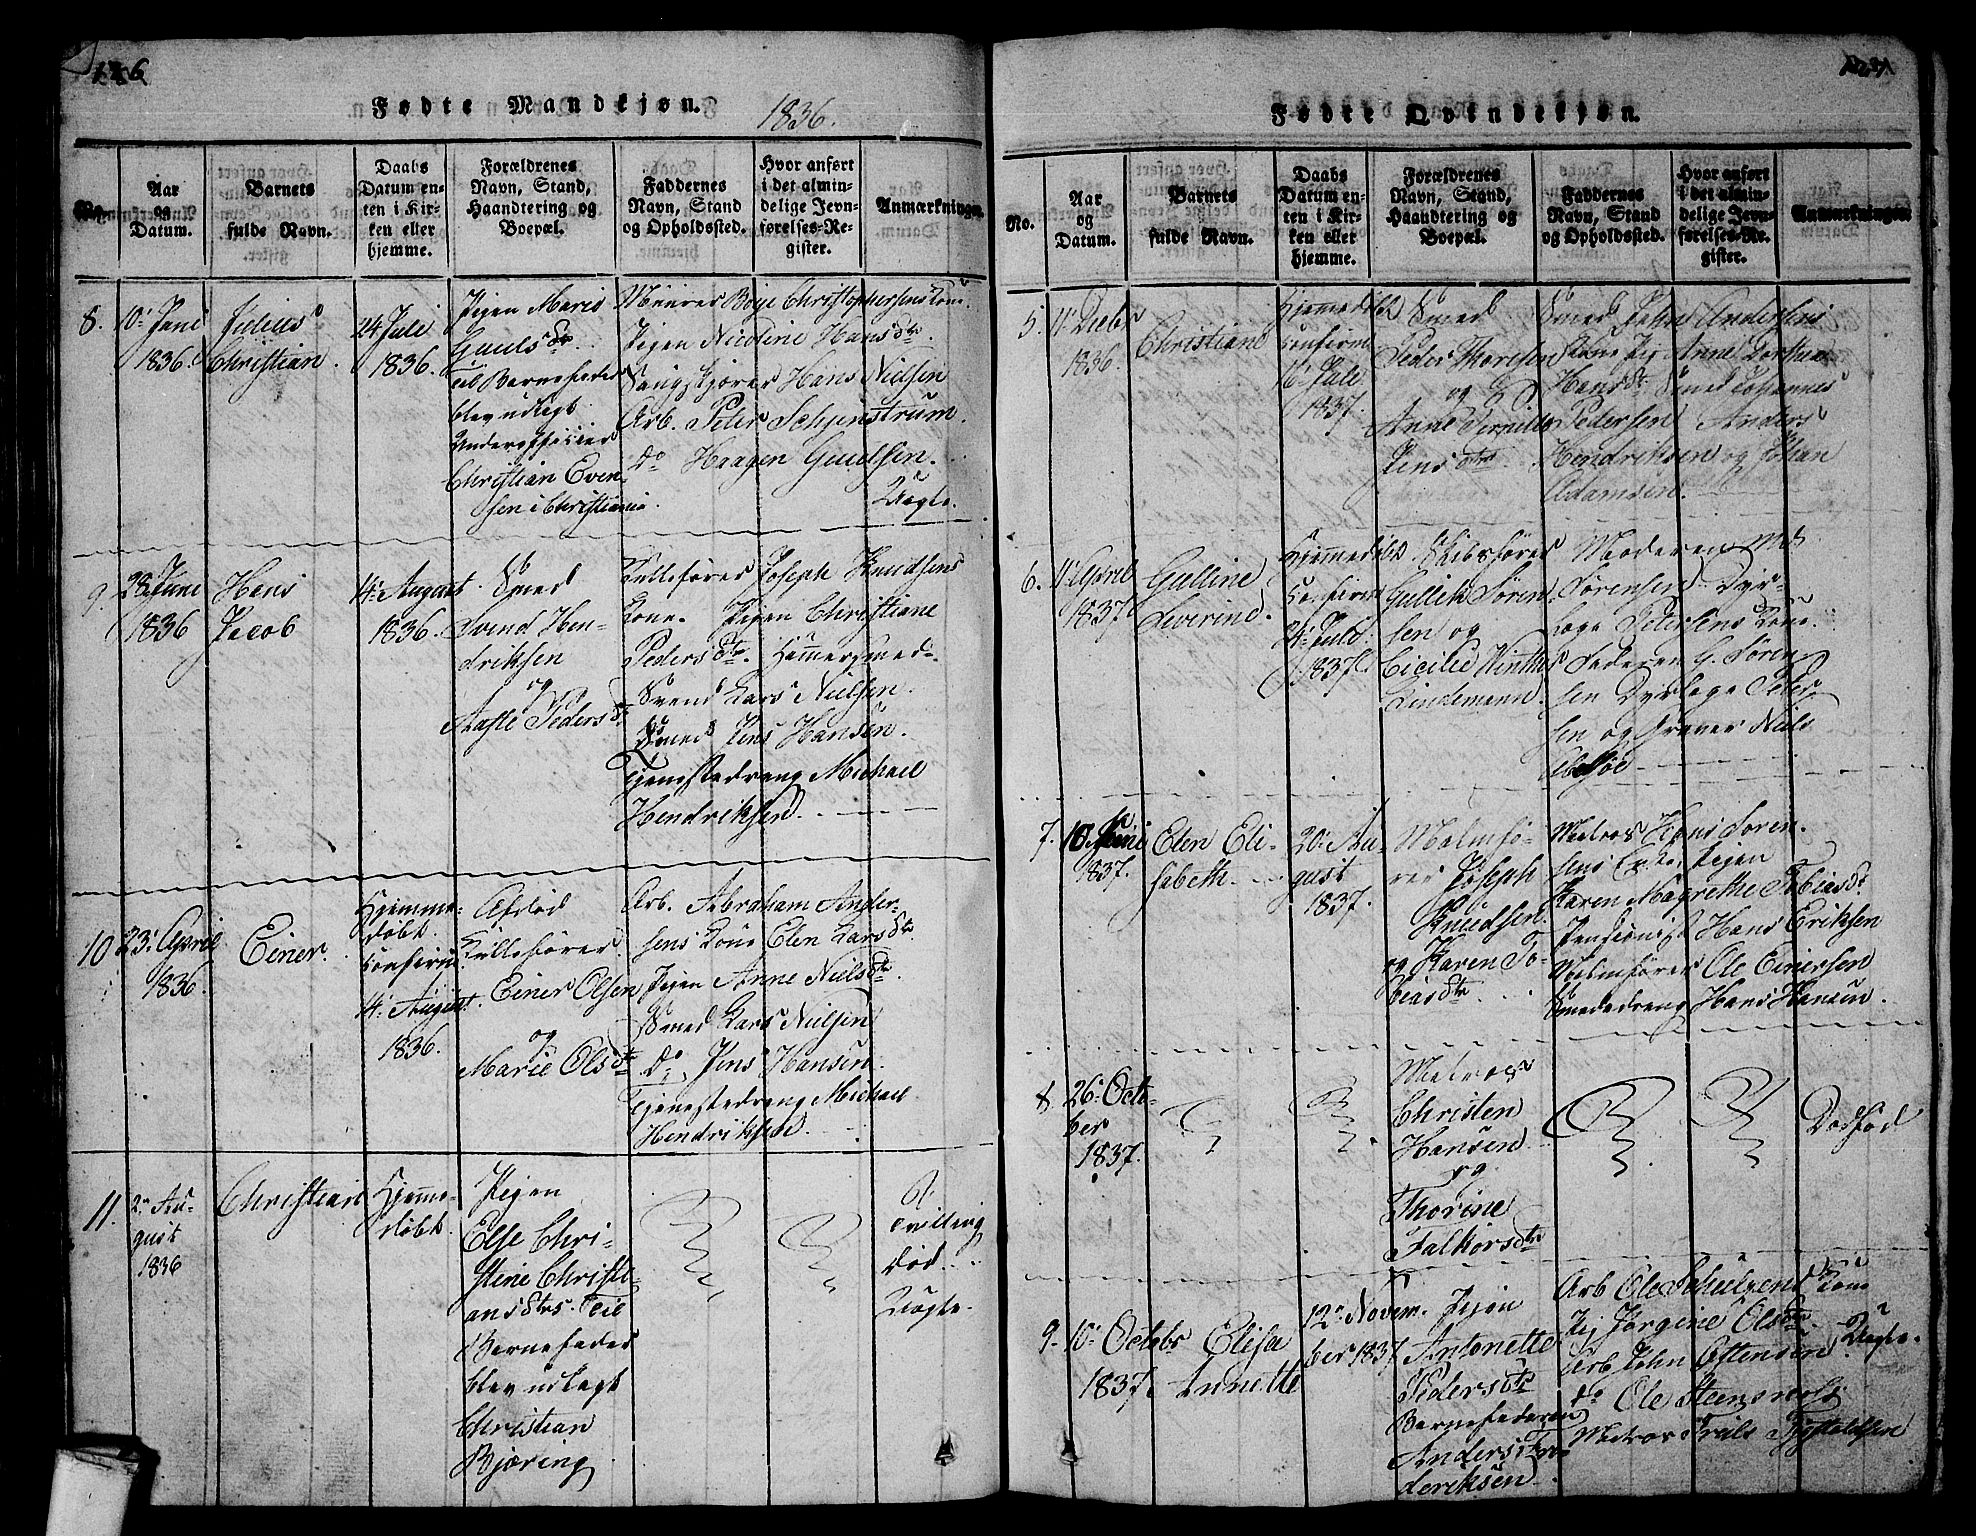 126
Fødte Mandkjøn.
1836.
No.
Aar
og
Datum.
Barnets
fulde Navn.
Daabs
Datum en-
ten i Kir-
ken eller
hjemme.
Forældrenes
Navn, Stand,
Haandtering og
Boepæl.
Faddernes
Navn, Stand
og Opholdssted.
Hvor anført
i det almin-
delige Jevn-
førelses-Re-
gister.
Anmærkninger.
8.
10: Juni
1836.
Julius
Christian
24 Juli
1836.
Pigen Maria
Guuls dtr.
til Barnefader
blev udlagt
Underofficier
Christian Even-
sen i Christiania
Murer Boje Christophersens Kone
Pigen Nicoline Hans dtr.
Hans Nielsen
Arb. Peter Schjenstrum.
Do Haagen Guulsen.
Uægte.
9.
28 Juni
1836
Hans
Jacob
14: August
1836.
Smed
Svend Hen-
driksen
og
Aaste Peders dtr
Kullefører Joseph Knudsens
Kone. Pigen Christiane
Peders dtr. Hammersmed-
Svend Lars Nielsen.
Smed Jens Hansen.
Tjenestedreng Michael
Hendriksen.
10
23: April
1836.
Einer.
Hjemme-
døbt
confirm.
14. August.
1836.
Afdød
Kullefører
Einer Olsen
og
Marie Ols dtr
Arb. Abraham Anders-
sens Kone Elen Lars dtr
Pigen Anne Niels dtr.
Smed Lars Nielsen
Do Jens Hansen.
Tjenestedreng Michael
Hendriksen.
11.
2: Au-
gust
1836
Christian
Hjemme-
døbt.
Pigen
Else Chri-
stine Christi-
ans dtrs. Til
Barnefader
blev udlagt
Christian
Bjøring
Tvilling
død.
Uægte.
Fødte Qvindekjøn.
No.
Aar
og
Datum.
Barnets
fulde Navn.
Daabs
Datum en-
ten i Kir-
ken eller
hjemme.
Forældrenes
Navn, Stand,
Haandtering og
Boepæl.
Faddernes
Navn, Stand
og Opholdssted.
Hvor anført
i det almin-
delige Jevn-
førelses-Re-
gister.
Anmærkninger.
5.
11: Decbr
1836.
Christiane
Hjemmedøbt
confirm.
16: Juli
1837.
Smed
Peder Thoresen
og
Anne Pernille
Jens dtr.
Smed John Andersens
Kone Pig. Anne Dorthea
Hans dtr Smed Johannes
Pedersen Anders
Hendriksen og Johan
Adamsen.
6.
11 April
1837.
Gulline
Severine.
Hjemmedøbt
confirm
24: Juli
1837.
Skibsfører
Gullik Søren-
sen og
Cicilie Winther
Lindemann.
Moderen M:
Sørensen. Dyr-
læge Petersens Kone.
Faderen G. Søren-
sen Dyrlæge Peter-
sen og Graver Niels
7.
18 Juni
1837.
Elen Eli-
sabeth.
20: Au-
gust
1837.
Malmfø-
rer Joseph
Knudsen
og Karen To-
bias dtr.
Matros Hans Søren-
sens Enke, Pigen
Karen Magrethe Tobias dtr
Pensionist Hans Eriksen
Malmfører Ole Einersen
Smededreng Hans Hansen.
8.
26: Octo-
ber
1837.
Matros
Christen
Hansen
og
Thorine
Falkors dtr
Dødfød
9.
10: Octobr
1837.
Elisa
Annette
12: Novem-
ber 1837
Pigen
Antonette
Peders dtr
Barnefaderen
Anders Fre-
deriksen.
Arb Ole Kone
Pig Jørgine Ols dtr.
Arb John Ostensen.
do Ole Steensvold
Matros Truls
Uægte.